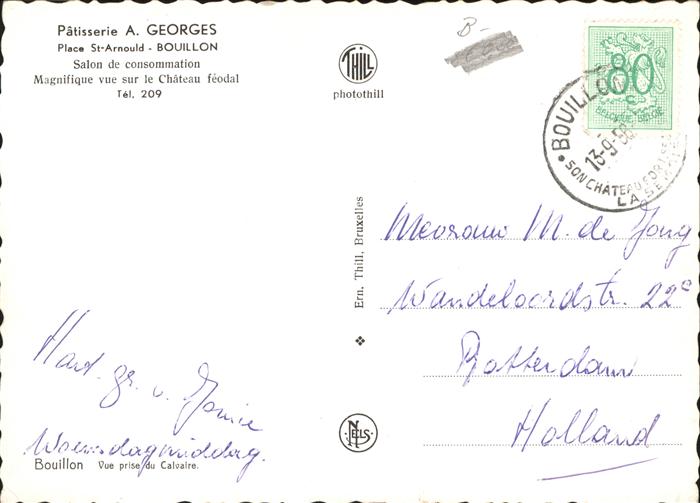 Pâtisserie A. GEORGES
Place St-Arnould - BOUILLON
Salon de consommation
Magnifique vue sur le Château féodal
Tél. 209
THILL
photothill
B-
80
c
BELGIQUE-BELGIË
BOUILLON
13-9-56
SON CHÂTEAU FORT
LA SE
Ern. Thill, Bruxelles
Mevrouw M. de Jong
Wandeloordstr. 22c
Rotterdam
Holland
Hart. gr. v. Jonnie
Woensdagmiddag.
NELS
Bouillon Vue prise du Calvaire.